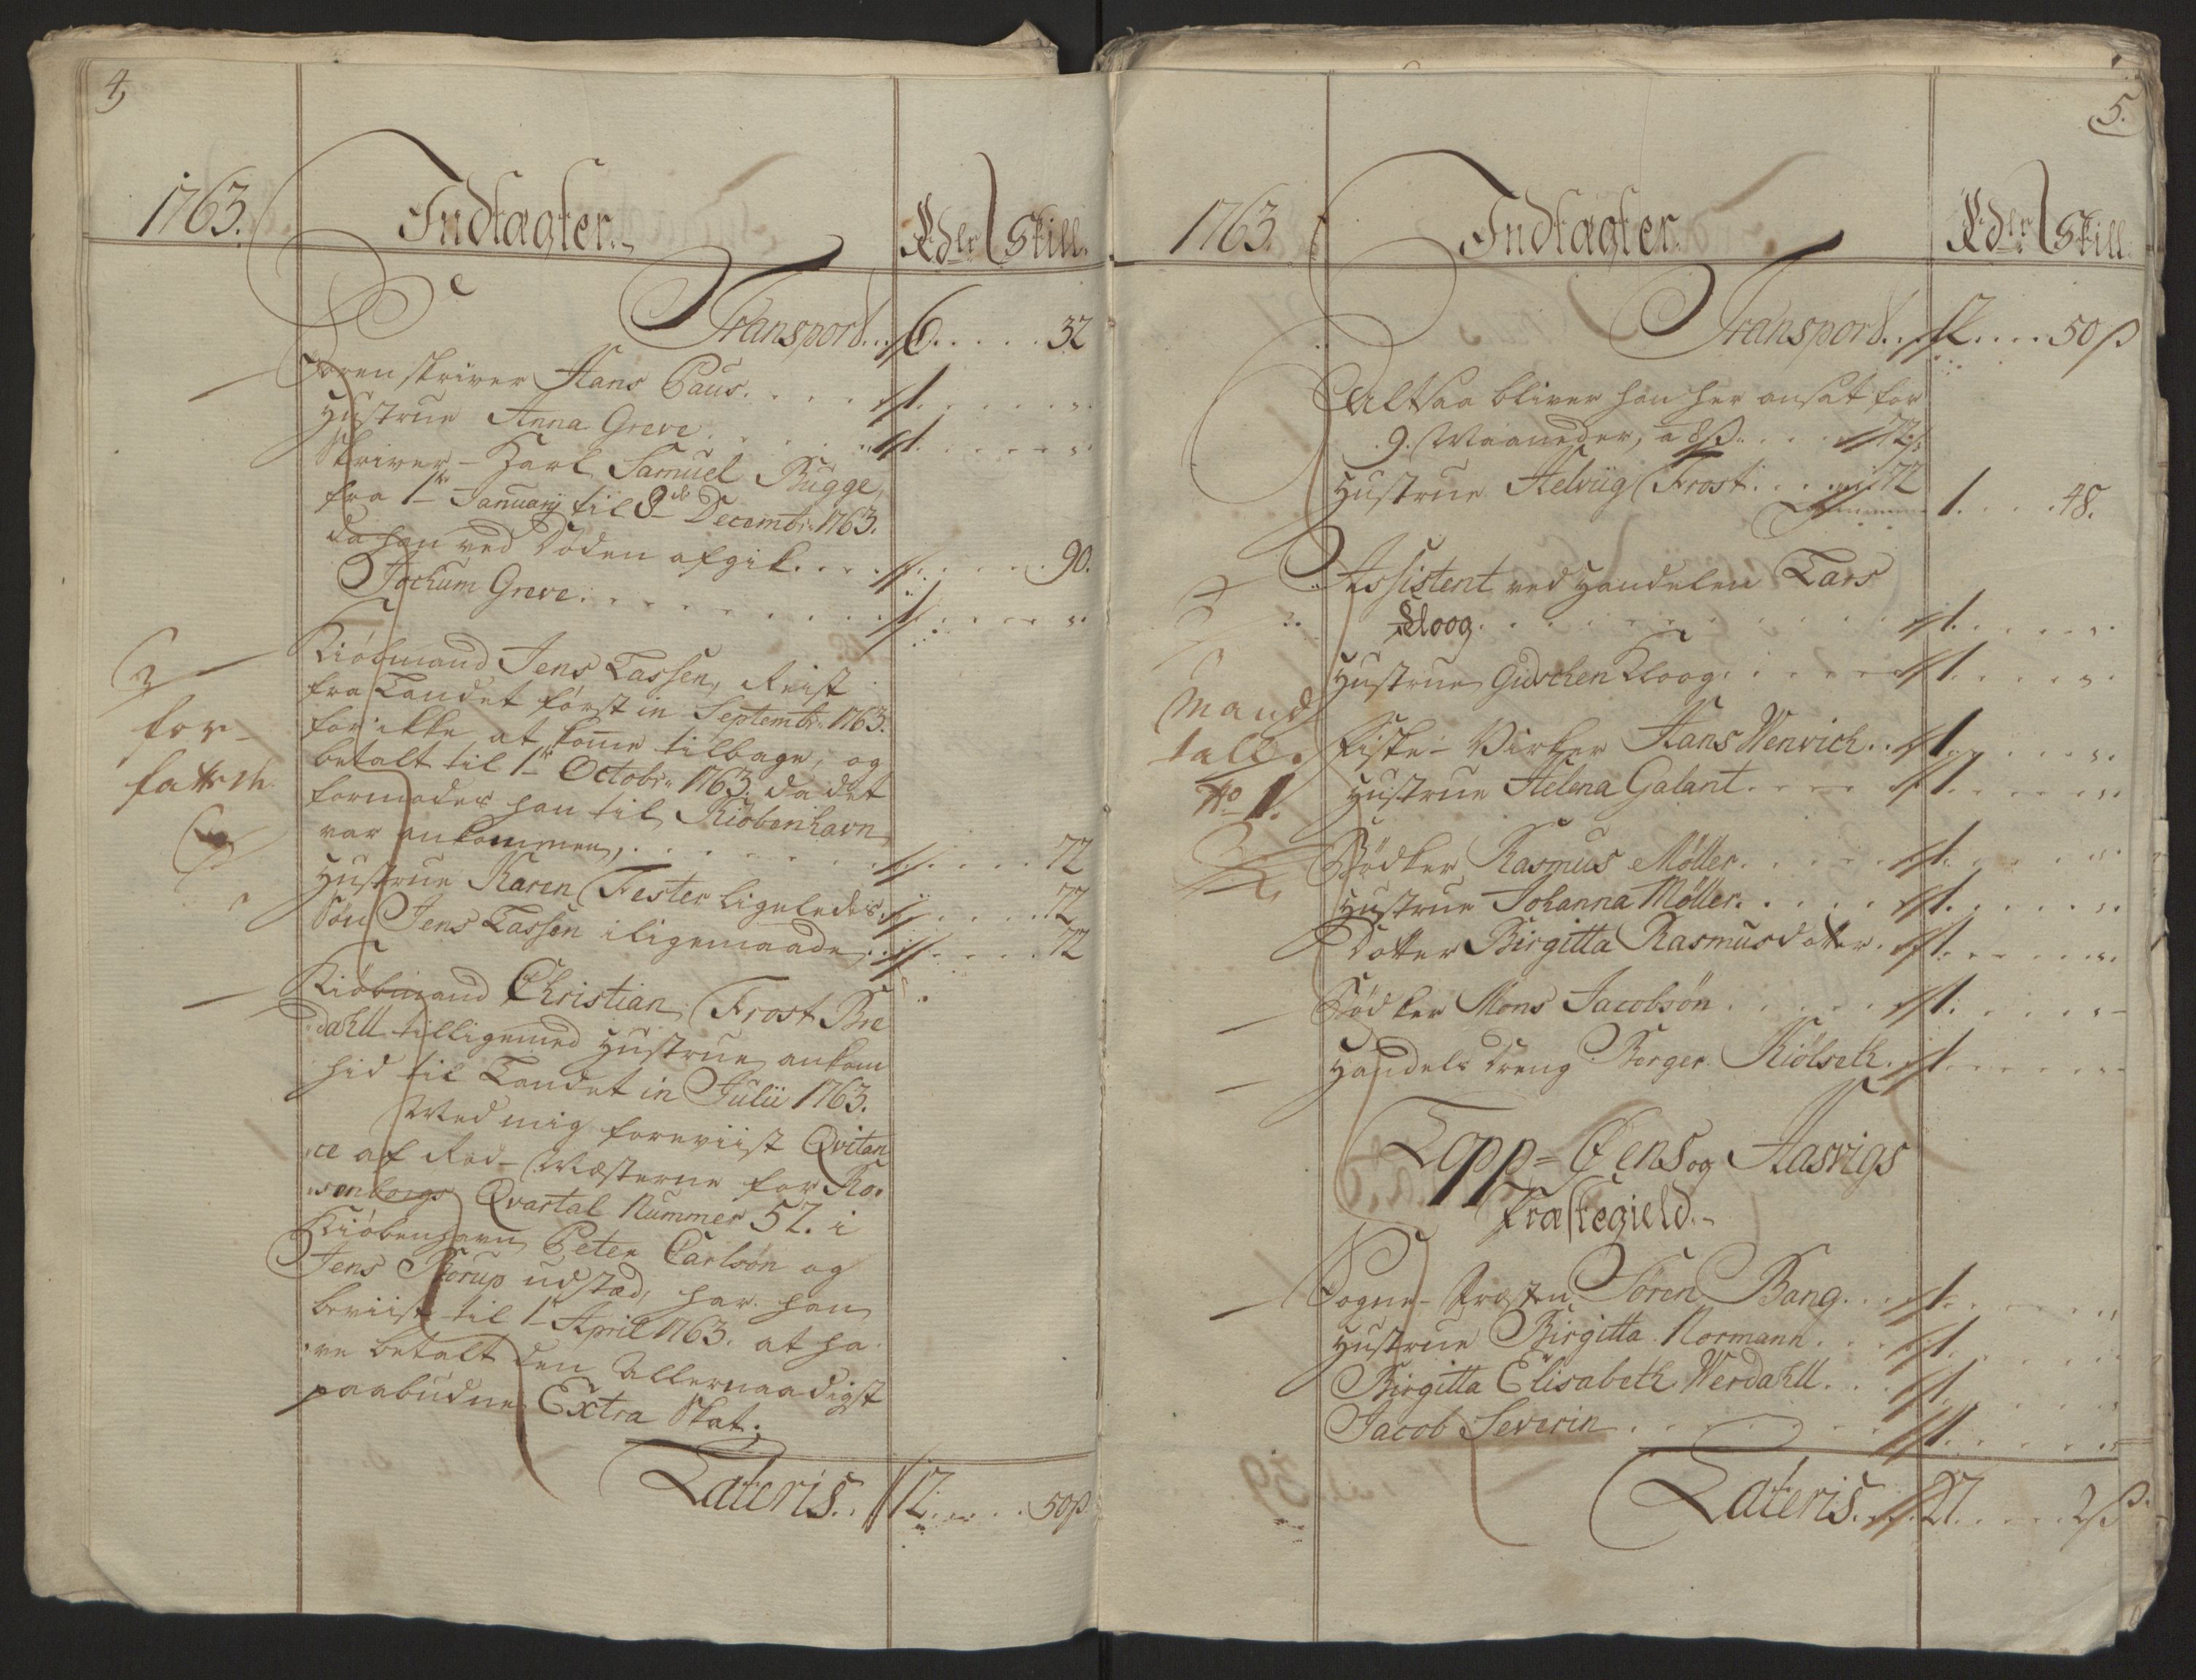 4
1763.
Indtægter.
Rdlr Skill.
Transport... 6..... 32
Sorenskriver Hans Paus..... 1......"
Hustrue Anna Greve....... 1......"
Skriver-Karl Samuel Bugge,
fra 1te Januarij til 8de Decembr: 1763.
da han ved Døden afgik......... 90.
Jochum Greve............ 1......"
Kiöbmand Jens Lassen, Reist
fra Landet först in Septembr: 1763.
for ikke at kome tilbage, og
betalt til 1te Octobr: 1763. da det
formodes han til Kiöbenhavn
var ankommen,............ 72
Hustrue Karen Fester ligeledes...... 72
Sön Jens Lassen iligemaade...... 72
Kiöbmand Christian Frost Bre
dahll tilligemed Hustrue ankom
hid til Landet in Julii 1763.
Med mig foreviist Qvitan
ce af Rod-Mesterne for Ro-
senborgs Qvartal Nummer 52. i
Kiöbenhavn Peter Carlsön og
Jens Storup udstæd, har han
beviist til 1te April 1763. at ha
ve betalt den Allernaadigst
paabudne Extra Skat.
Lateris.. 12..... 50ß
5.
1763.
Indtægter.
Rdlr Skill.
Transport... 12.... 50ß
Altsaa bliver han her ansat for
9. Maaneder, a 8ß..... 72
Hustrue Helviig Frost..... 72
1..... 48.
Assistent ved Handelen Lars
Kloog............ 1......"
Hustrue Giørchen Kloog...... 1......"
Mand
tall.
No 1.
Fiske-Virker Hans Wenrich... 1......"
Hustrue Helena Galant..... 1......"
Bödker Rasmus Møller...... 1......"
Hustrue Johanna Møller...... 1......"
Dotter Birgitta Rasmusdotter. 1......"
Bödker Mons Jacobsön...... 1......"
Handels Dreng Borger Kiölseth. 1......"
Lopp-Øens og Hasvigs
Præstegield.
Sogne-Præsten Sören Bang... 1......"
Hustrue Birgitta Normann... 1......"
Birgitta Elisabeth Werdahll... 1......"
Jacob Severin......... 1......"
Lateris... 27..... 2ß.